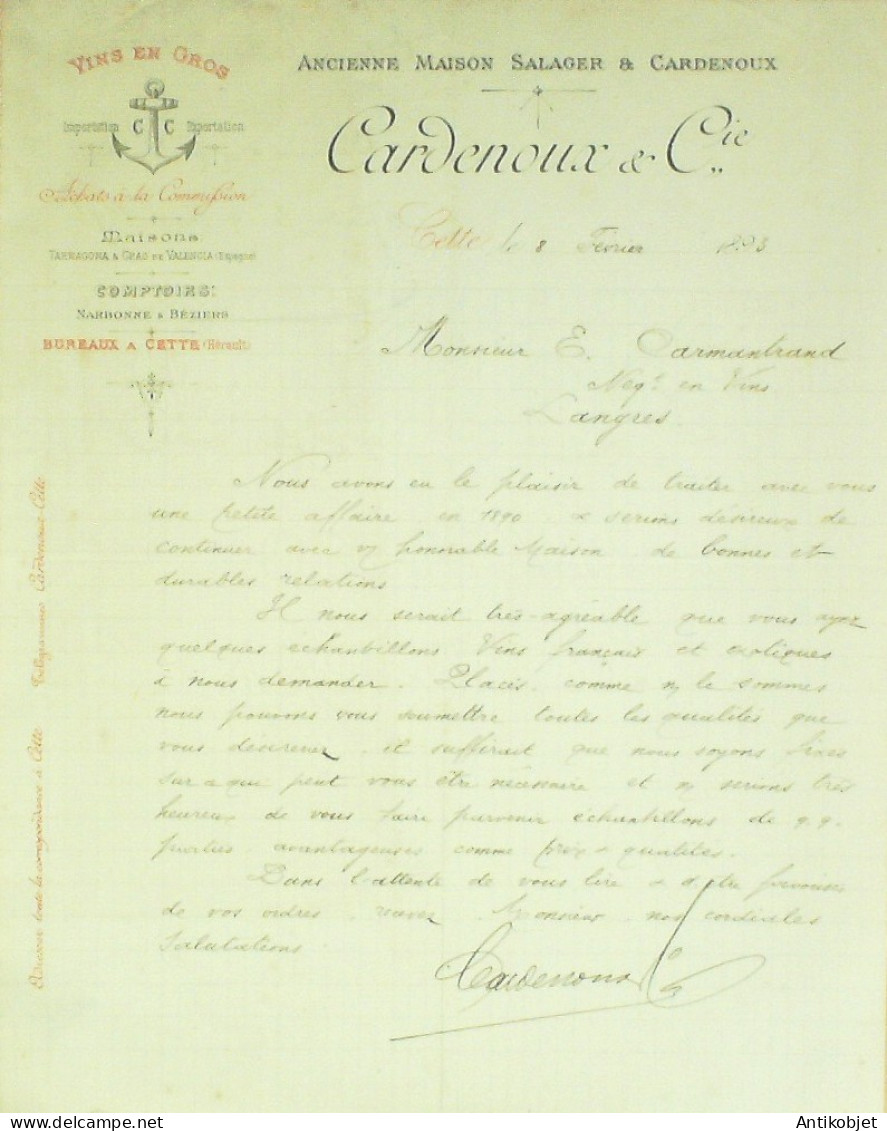 VINS EN GROS
Importation C C Exportation
Achats à la Commission
Maisons
TARRAGONA & GRAO DE VALENCIA (Espagne)
COMPTOIRS:
NARBONNE & BÉZIERS
BUREAUX A CETTE (Hérault)
ANCIENNE MAISON SALAGER & CARDENOUX
Cardenoux & Cie
Cette, le 8 Février 1893
Monsieur E. Darmantrand
Negt en Vins
Langres
Nous avons eu le plaisir de traiter avec vous
une petite affaire en 1890 & serions désireux de
continuer avec v/ honorable Maison de bonnes et
durables relations
Il nous serait très-agréable que vous ayez
quelques échantillons Vins français et exotiques
à nous demander. Placés comme n/ le sommes
nous pouvons vous soumettre toutes les qualités que
vous désirerez, il suffirait que nous soyons fixés
sur ce qui peut vous être nécessaire et n/ serions très
heureux de vous faire parvenir échantillons de q.q.
parties avantageuses comme prix & qualités.
Dans l'attente de vous lire & d'être favorisés
de vos ordres, recevez, Monsieur, nos cordiales
Salutations
Cardenoux
Adresser toute la correspondance à Cette
Télégrammes Cardenoux-Cette
Antikobjet